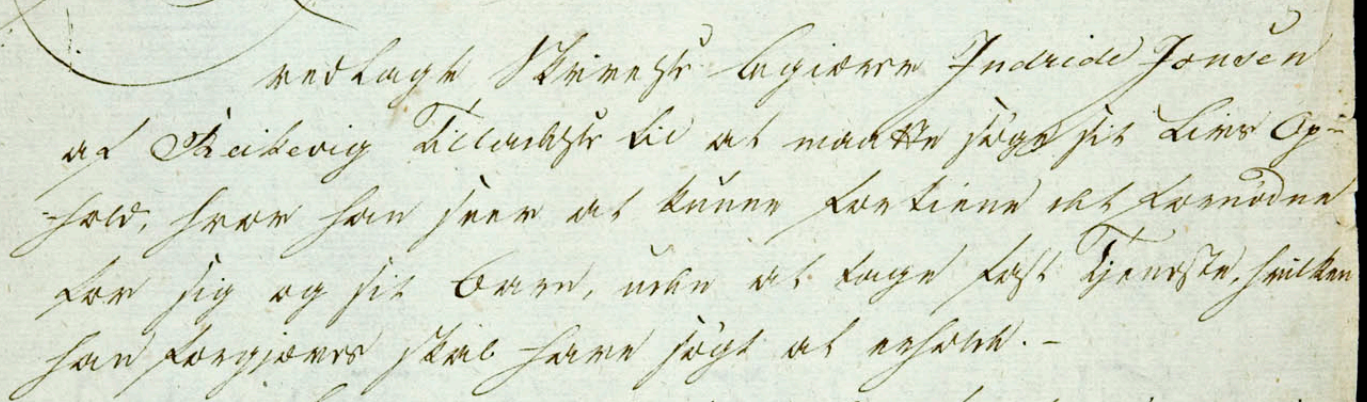 vedlagte Skrivelse begiærer Indride Jonsen
af Reikevig Tilladelse til at maatte søge sit Livs Op=
=hold, hvor han seer at kunne fortiene det fornødne
for sig og sit Barn, uden at tage fast Tjeneste, hvilken
han forgjæves skal have søgt at erholde. -